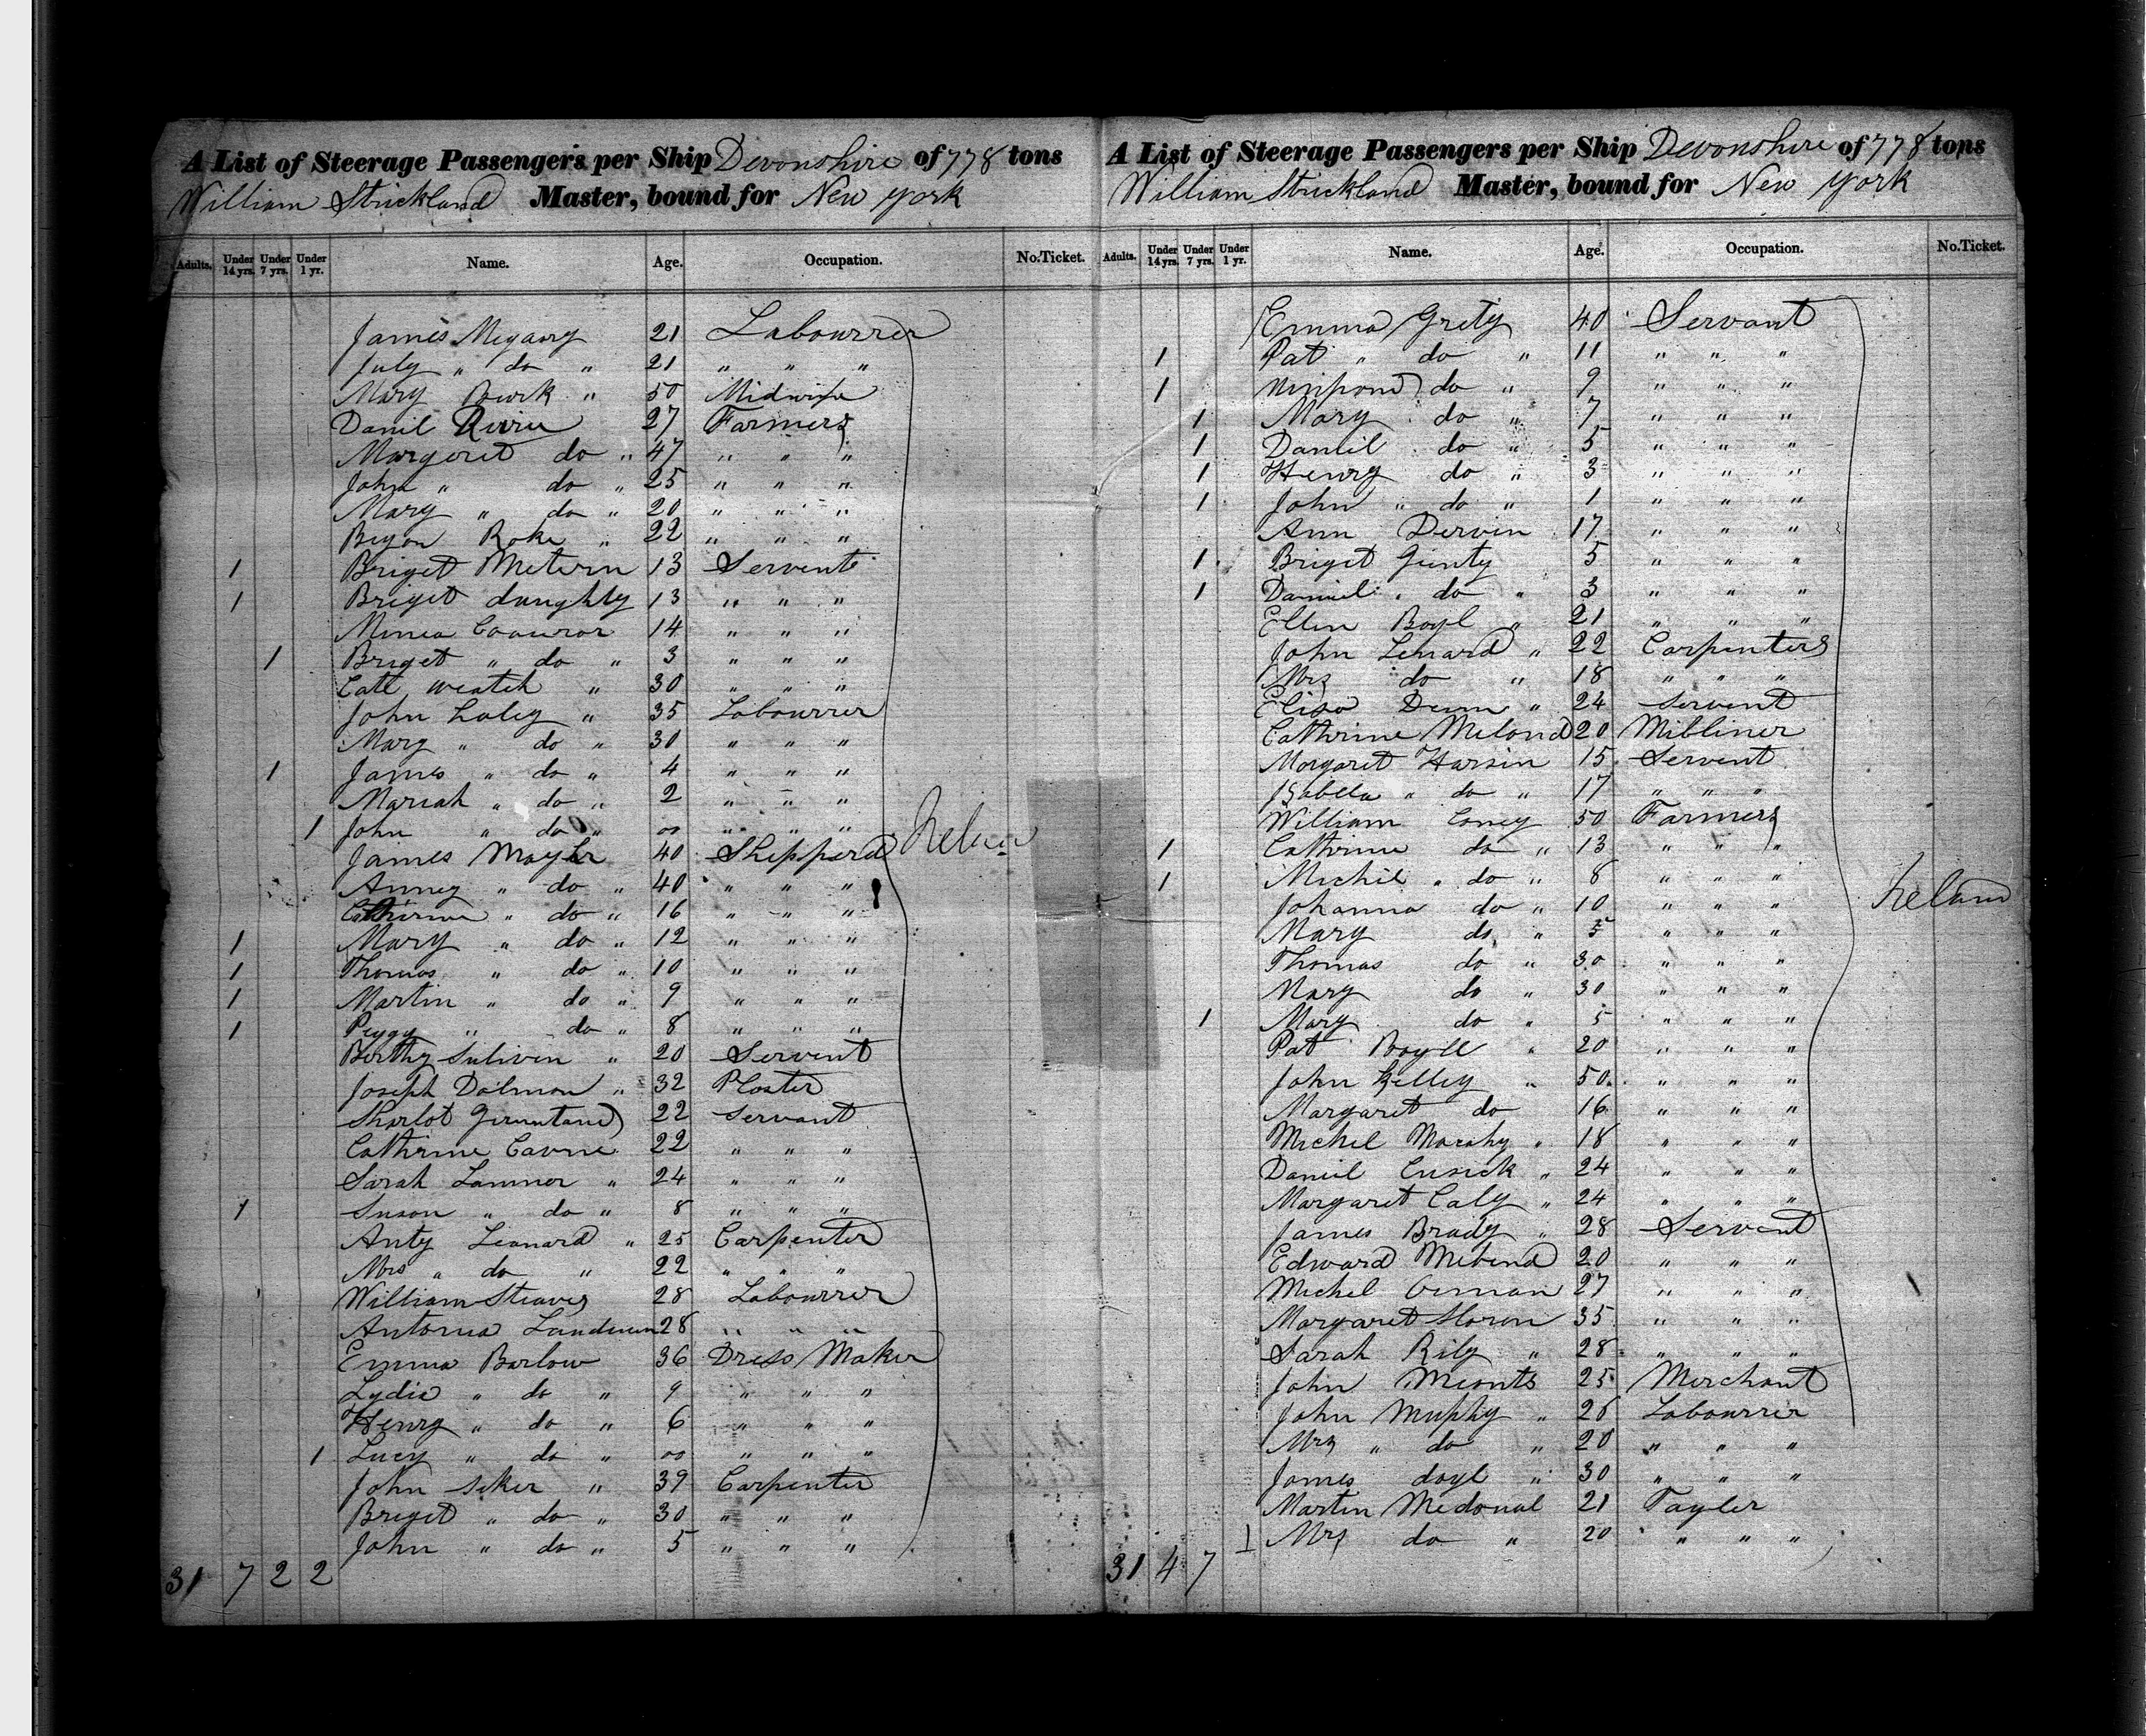 A List of Steerage Passengers per Ship Devonshire of 778 tons
William Strickland Master, bound for New York
Adults. Under 14 yrs. Under 7 yrs. Under 1 yr. Name. Age. Occupation. No. Ticket.
James Megary 21 Labourrer
July " do " 21 " " "
Mary Burk " 50 Midwife
Danil 27 Farmers
Margeret do " 47 " " "
John " do " 25 " " "
Mary " do " 20 " " "
Bryan Roke " 22 " " "
1 Briget Metern 13 Servents
1 Briget daughty 13 " " "
14 " " "
1 Briget " do " 3 " " "
30 " " "
John Laley " 35 Labourrer
Mary " do " 30 " " "
1 James " do " 4 " " "
Mariah " do " 2 " " "
1 John " do " 00 " " "
James Mayler 40 Shipperd
Anney " do " 40 " " "
Catherine " do " 16 " " "
1 Mary " do " 12 " " "
1 Thomas " do " 10 " " "
1 Martin " do " 9 " " "
1 Peggy " do " 8 " " "
Berthy Suliven " 20 Servent
Joseph Dolmon " 32 Plaster
Sharlot 22 Servant
Cathrine Cavne 22 " " "
Sarah Lammer " 24 " " "
1 Suson " do " 8 " " "
Anty Leonard " 25 Carpenter
Mrs " do " 22 " " "
William Steaves 28 Labourrer
Antonia 28 " " "
Emma Barlow 36 Dress Maker
Lydia " do " 9 " " "
Henry " do " 6 " " "
1 Lucy " do " 00 " " "
John Seker " 39 Carpenter
Briget " do " 30 " " "
John " do " 5 " " "
31 7 2 2
Ireland
A List of Steerage Passengers per Ship Devonshire of 778 tons
William Strickland Master, bound for New York
Adults. Under 14 yrs. Under 7 yrs. Under 1 yr. Name. Age. Occupation. No. Ticket.
Emma Grety 40 Servant
1 Pat " do " 11 " " "
1 do " 9 " " "
1 Mary do " 7 " " "
1 Daniel do " 5 " " "
1 Henry do " 3 " " "
1 John " do " 1 " " "
Ann Dervin 17 " " "
1 Briget Ginty 5 " " "
1 Daniel " do " 3 " " "
Ellin Boyl " 21 " " "
John Lenard " 22 Carpenters
Mrs do " 18 " " "
Elisa Dunn " 24 Servent
Cathrine Melond 20 Milliner
Morgaret Harsin 15 Servent
Isabella " do " 17 " " "
William Coney 50 Farmers
1 Cathrine do " 13 " " "
1 Michil " do " 8 " " "
Johanna do " 10 " " "
Mary do " 5 " " "
Thomas do " 30 " " "
Mary do " 30 " " "
1 Mary do " 5 " " "
Pat Boyll " 20 " " "
John Kelley " 50 " " "
Margaret do 16 " " "
Michel Morahy " 18 " " "
Daniel Cusick " 24 " " "
Margaret Caly " 24 " " "
James Brady " 28 Servent
Edward 20 " " "
Michel Orman 27 " " "
Margaret Horen 35 " " "
Sarah Rily " 28 " " "
John Meonts 25 Merchant
John Muphy " 26 Labourrer
Mrs " do " 20 " " "
James doyl " 30 " " "
Martin Medonal 21 Tayler
1 Mrs do " 20 " " "
31 4 7
Ireland